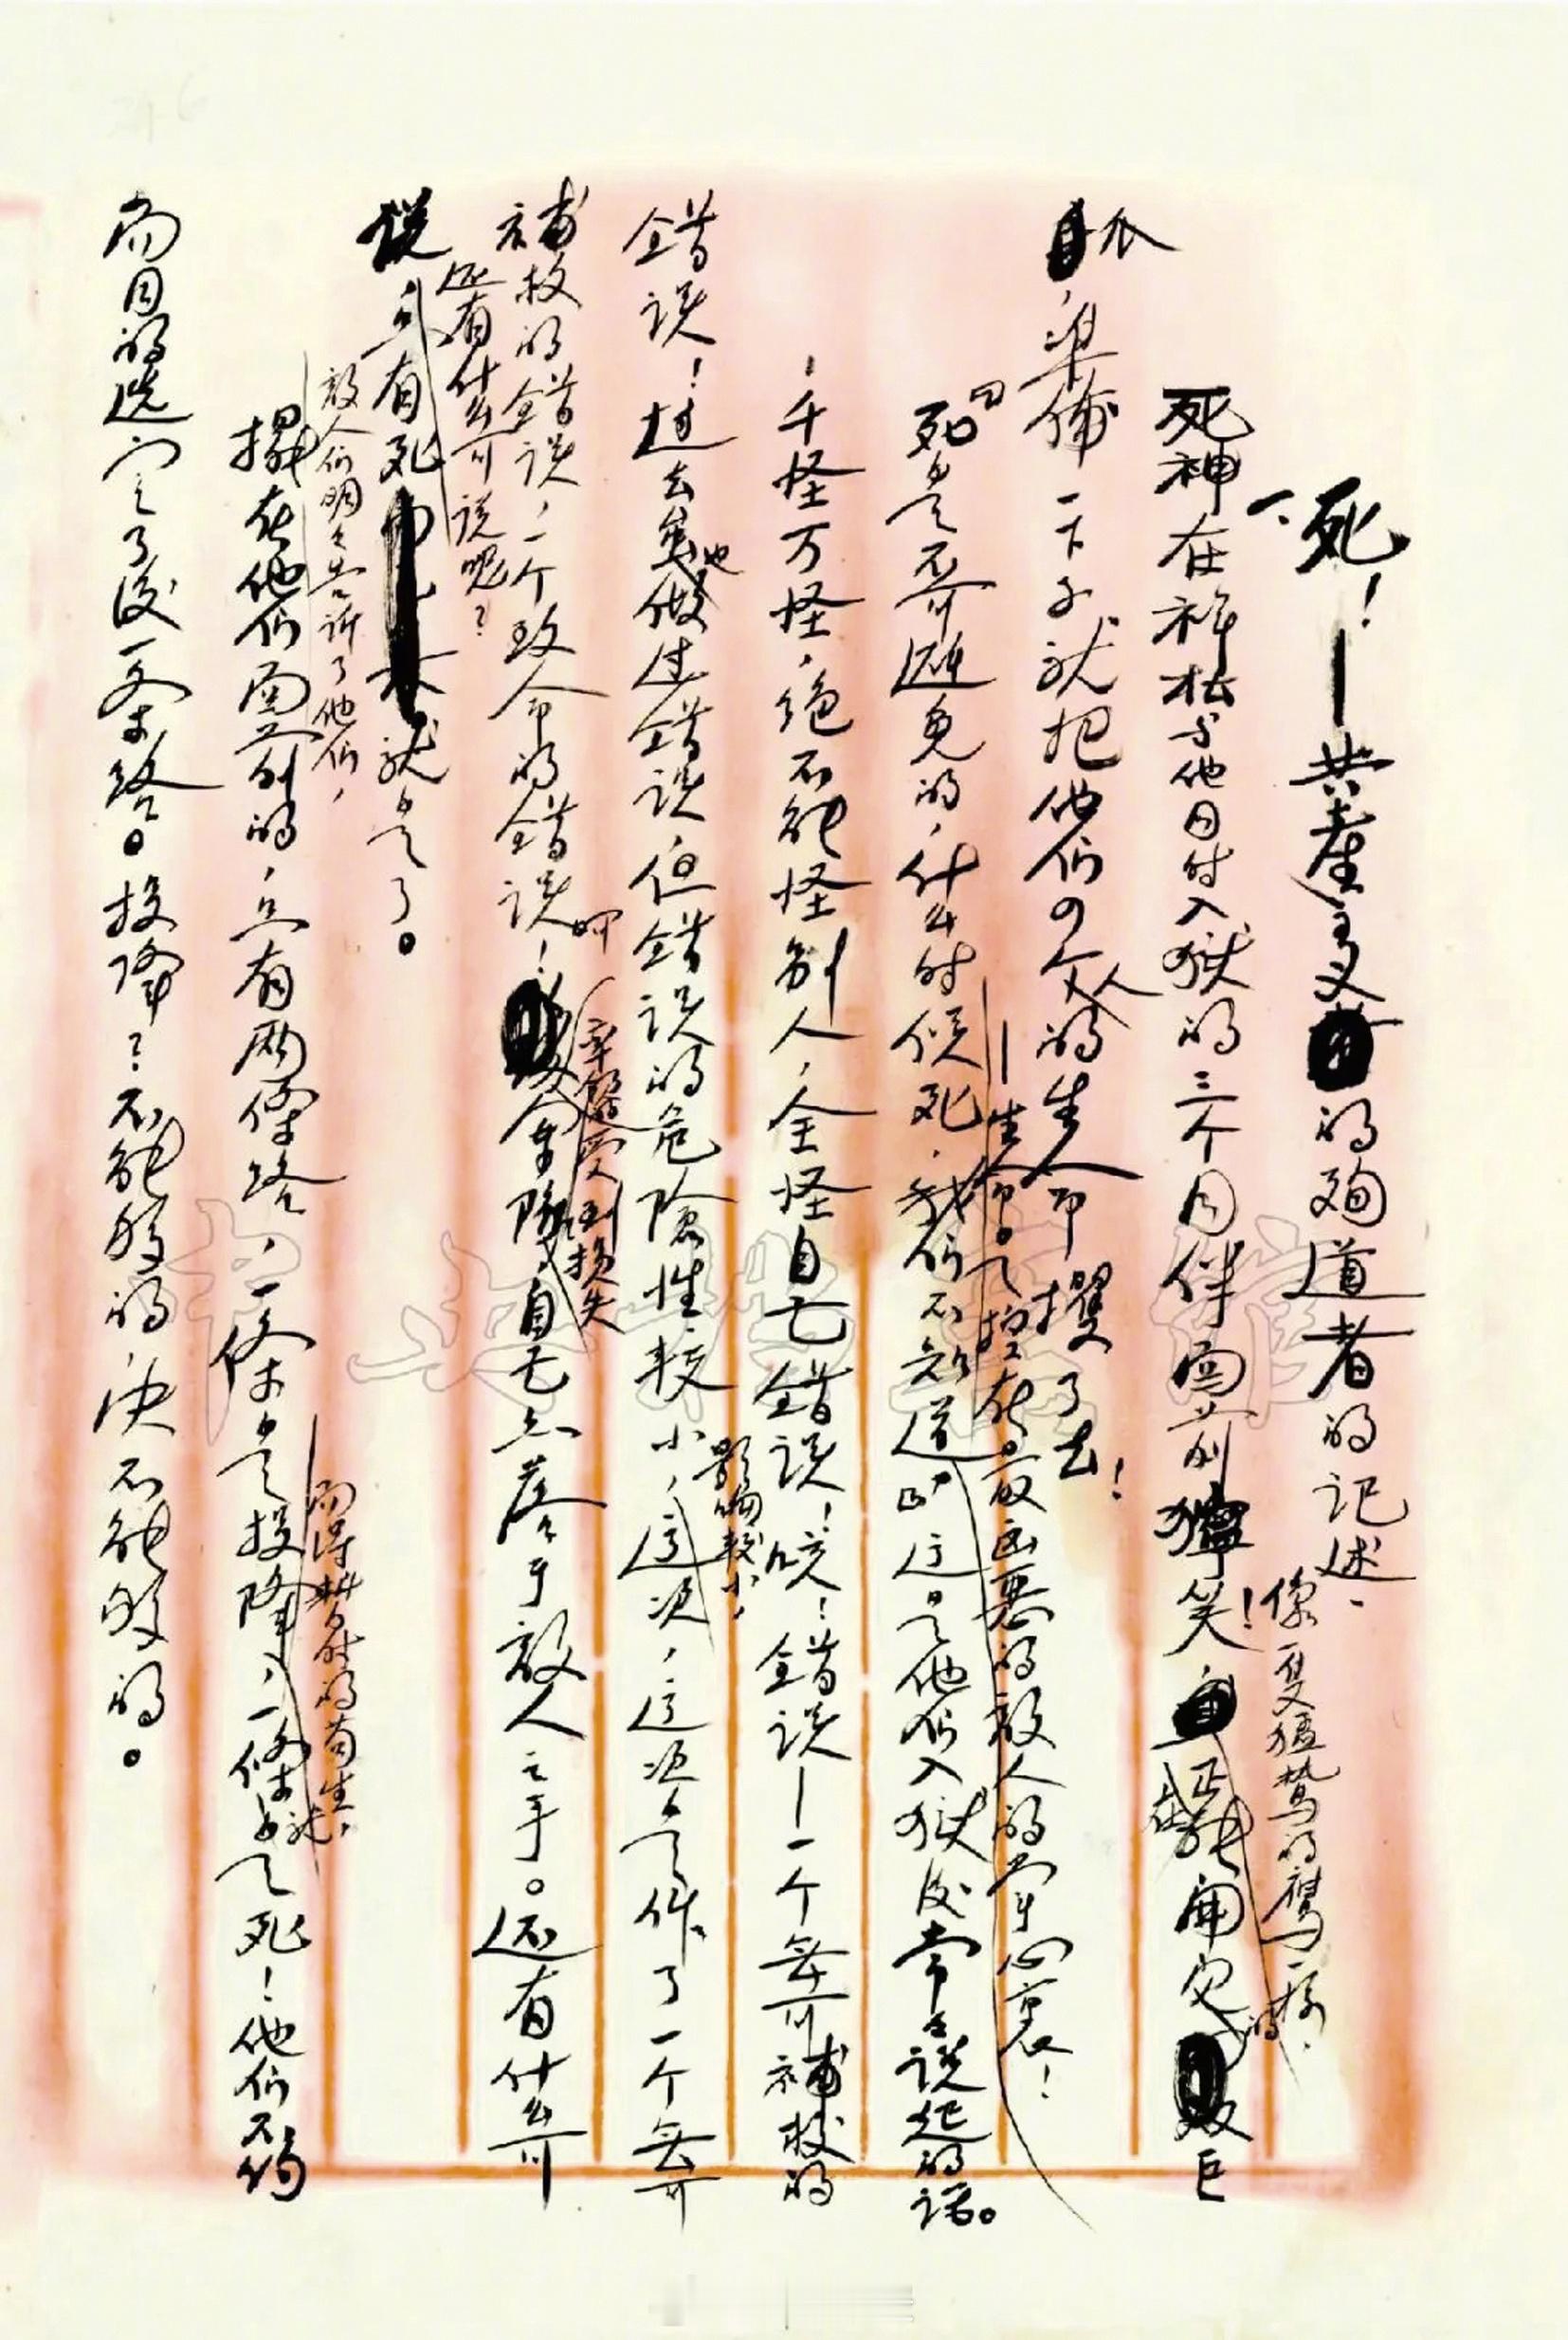 一、死！——共产主义的殉道者的记述
死神在祥松与他同时入狱的三个同伴面前狞笑！像一只猛鸷的鹰一样，正在展开它的巨
爪，准备一下子就把他们四个人的生命攫了去！
——生命是操在最凶恶的敌人的掌心里！
“死是不可避免的，什么时候死，我们不知道”这是他们入狱后常常说起的话。
“千怪万怪，绝不能怪别人，全怪自己错误！唉！错误——一个无可补救的
错误！过去虽也做过错误，但错误的危险性较小，影响较小，这次，这次是作了一个无可
补救的错误，一个致命的错误！
自己亦落于敌人之手。还有什么可
说
还有什么可说呢？
只有死就是了。
敌人们明明告诉了他们，
摆在他们面前的，只有两条路，一条是投降，而得暂时的苟生，一条就是死！他们不约
而同的选定了后一条路。投降？不能够的，决不能够的。